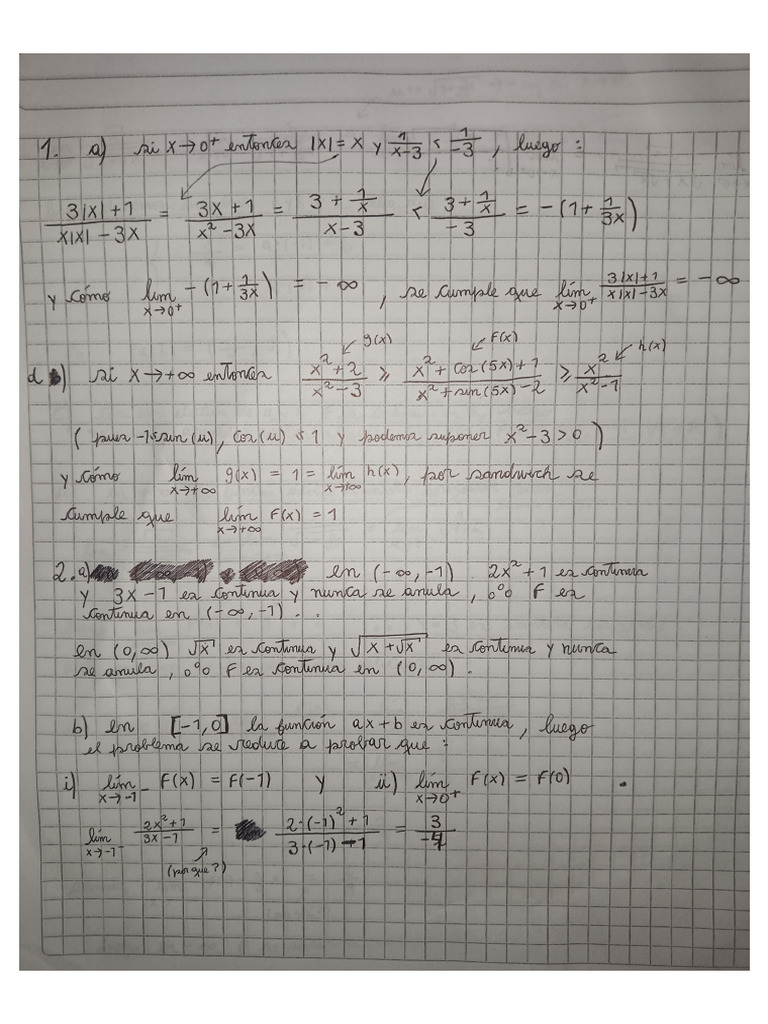 1. a) si x→0⁺ entonces |x|=x y \frac{1}{x-3} < \frac{1}{-3}, luego:
\frac{3|x|+1}{x|x|-3x} = \frac{3x+1}{x²-3x} = \frac{3+\frac{1}{x}}{x-3} < \frac{3+\frac{1}{x}}{-3} = -(1+\frac{1}{3x})
y cómo \lim_{x→0⁺} -(1+\frac{1}{3x}) = -∞, se cumple que \lim_{x→0⁺} \frac{3|x|+1}{x|x|-3x} = -∞
g(x) F(x) h(x)
d) si x→+∞ entonces \frac{x²+2}{x²-3} ≥ \frac{x²+cos(5x)+1}{x²+sin(5x)-2} ≥ \frac{x²}{x²-1}
(pues -1≤sin(u), cos(u)≤1 y podemos suponer x²-3>0)
y cómo \lim_{x→+∞} g(x) = 1 = \lim_{x→+∞} h(x), por sandwich se
cumple que \lim_{x→+∞} F(x) = 1
2. a) en (-∞,-1) 2x²+1 es continua
y 3x-1 es continua y nunca se anula, o°o F es
continua en (-∞,-1)..
en (0,∞) √x es continua y \sqrt{x+\sqrt{x}} es continua y nunca
se anula, o°o F es continua en (0,∞).
b) en [-1,0] la función ax+b es continua, luego
el problema se reduce a probar que:
i) \lim_{x→-1⁻} F(x) = F(-1) y ii) \lim_{x→0⁺} F(x) = F(0) .
\lim_{x→-1⁻} \frac{2x²+1}{3x-1} = \frac{2·(-1)²+1}{3·(-1)-1} = \frac{3}{-4}
(por que?)